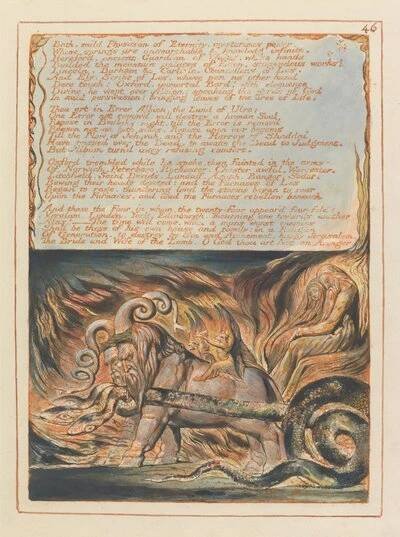 46
Bath, mild Physician of Eternity, mysterious power
Whose springs are unsearchable & knowledg infinite.
Hereford, ancient Guardian of Wales, whose hands
Builded the mountain palaces of Eden, stupendous works!
Lincoln, Durham & Carlisle, Councellors of Los.
And Ely, Scribe of Los, whose pen no other hand
Dare touch! Oxford, immortal Bard! with eloquence
Divine, he wept over Albion: speaking the words of God
In mild perswasion: bringing leaves of the Tree of Life.
Thou art in Error Albion, the Land of Ulro:
One Error not remov'd, will destroy a human Soul
Repose in Beulahs night, till the Error is remov'd
Reason not on both sides. Repose upon our bosoms
Till the Plow of Jehovah, and the Harrow of Shaddai
Have passed over the Dead, to awake the Dead to Judgment.
But Albion turn'd away refusing comfort.
Oxford trembled while he spoke, then fainted in the arms
Of Norwich, Peterboro, Rochester, Chester awful, Worcester,
Litchfield, Saint Davids, Landaff, Asaph, Bangor, Sodor,
Bowing their heads devoted: and the Furnaces of Los
Began to rage, thundering loud the storms began to roar
Upon the Furnaces, and loud the Furnaces rebellow beneath
And these the Four in whom the twenty-four appear'd four-fold:
Verulam, London, York, Edinburgh, mourning one towards another
Alas!—The time will come, when a mans worst enemies
Shall be those of his own house and family: in a Religion
Of Generation, to destroy by Sin and Atonement, happy Jerusalem,
The Bride and Wife of the Lamb. O God thou art Not an Avenger!